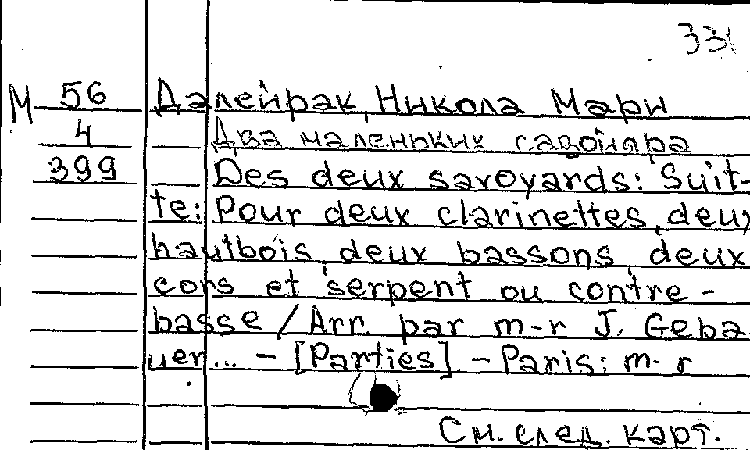 331
М 56 Далейрак, Никола Мари
4 Два маленьких савойяра
399 Des deux savoyards: Suit-
te: Pour deux clarinettes, deux
hautbois, deux bassons, deux
cors et serpent ou contre-
basse / Arr. par m-r J. Geba
uer... - [Parties] - Paris: m-r
См. след. карт.